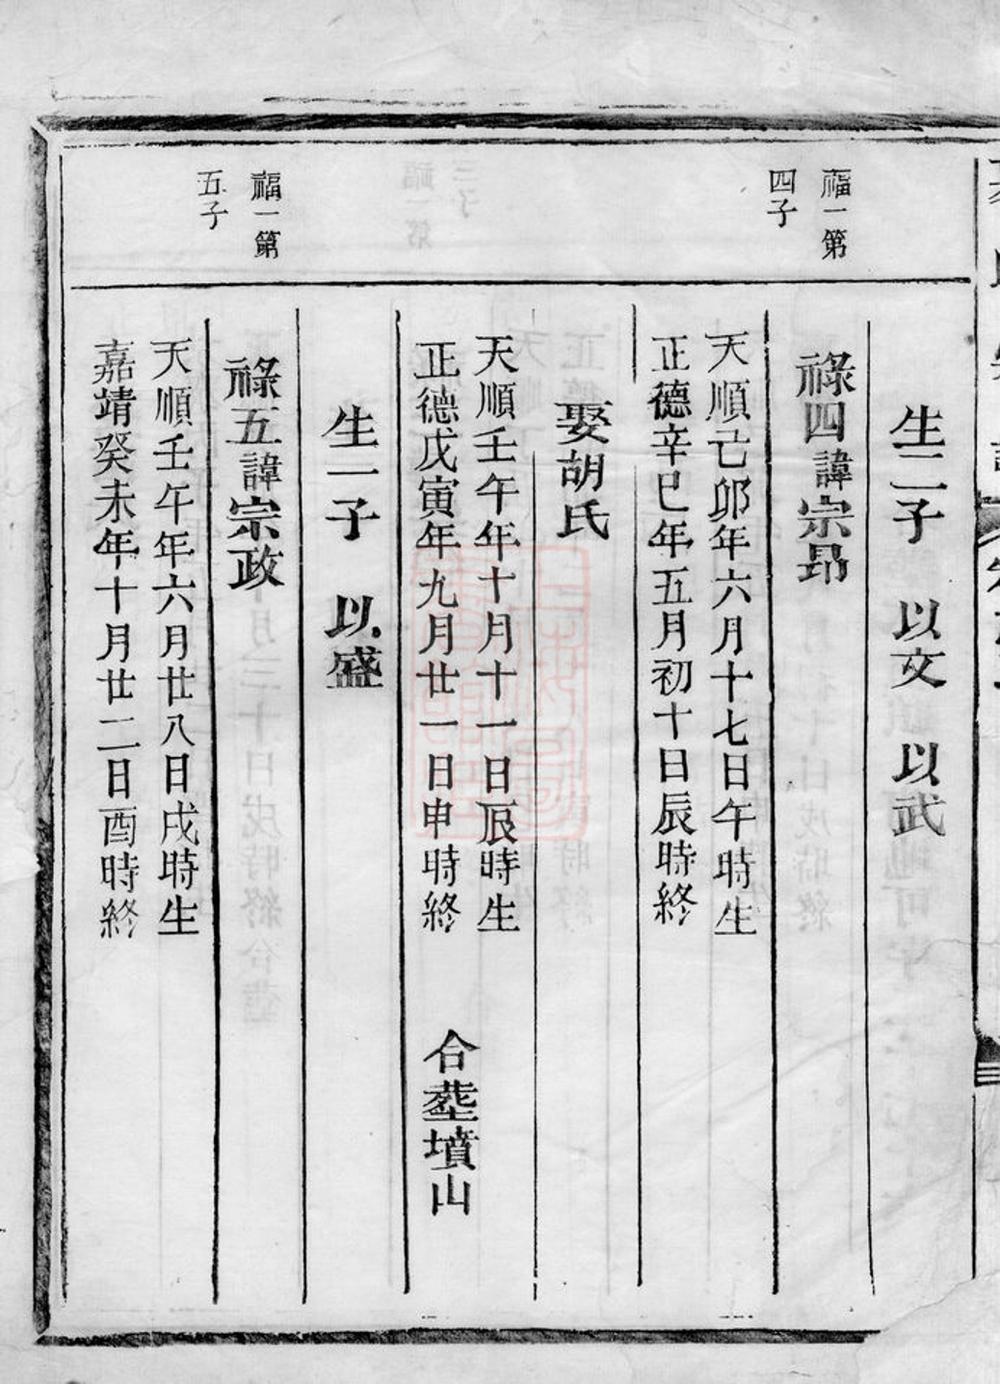 生二子　以文　以武
福一第
四子
祿四諱宗昂
天順己卯年六月十七日午時生
正德辛巳年五月初十日辰時終
娶胡氏
天順壬午年十月十一日辰時生
正德戊寅年九月廿一日申時終　合塟墳山
生一子　以盛
福一第
五子
祿五諱宗政
天順壬午年六月廿八日戌時生
嘉靖癸未年十月廿二日酉時終